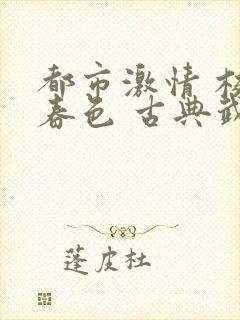 都市激情
春色 古典
蓬皮杜